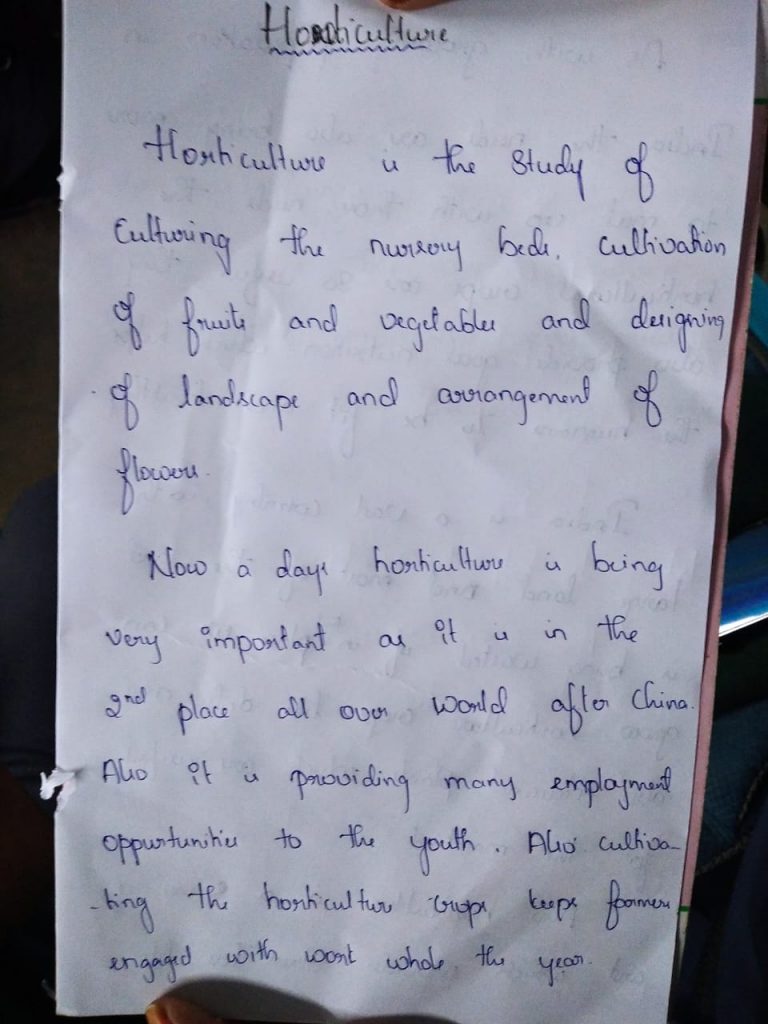 Horticulture
Horticulture is the study of
Culturing the nursery beds, cultivation
of fruits and vegetables and designing
of landscape and arrangement of
flowers.
Now a days horticulture is being
very important as it is in the
2nd place all over world after China.
Also it is providing many employment
oppurtunities to the youth. Also cultiva-
-ting the horticulture crops, keeps farmers
engaged with work whole the year.